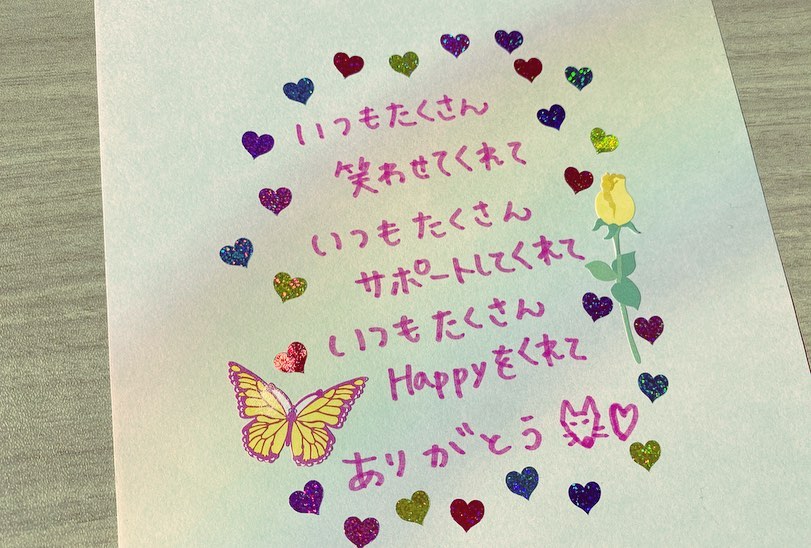 いつもたくさん
笑わせてくれて
いつもたくさん
サポートしてくれて
いつもたくさん
Happyをくれて
ありがとう